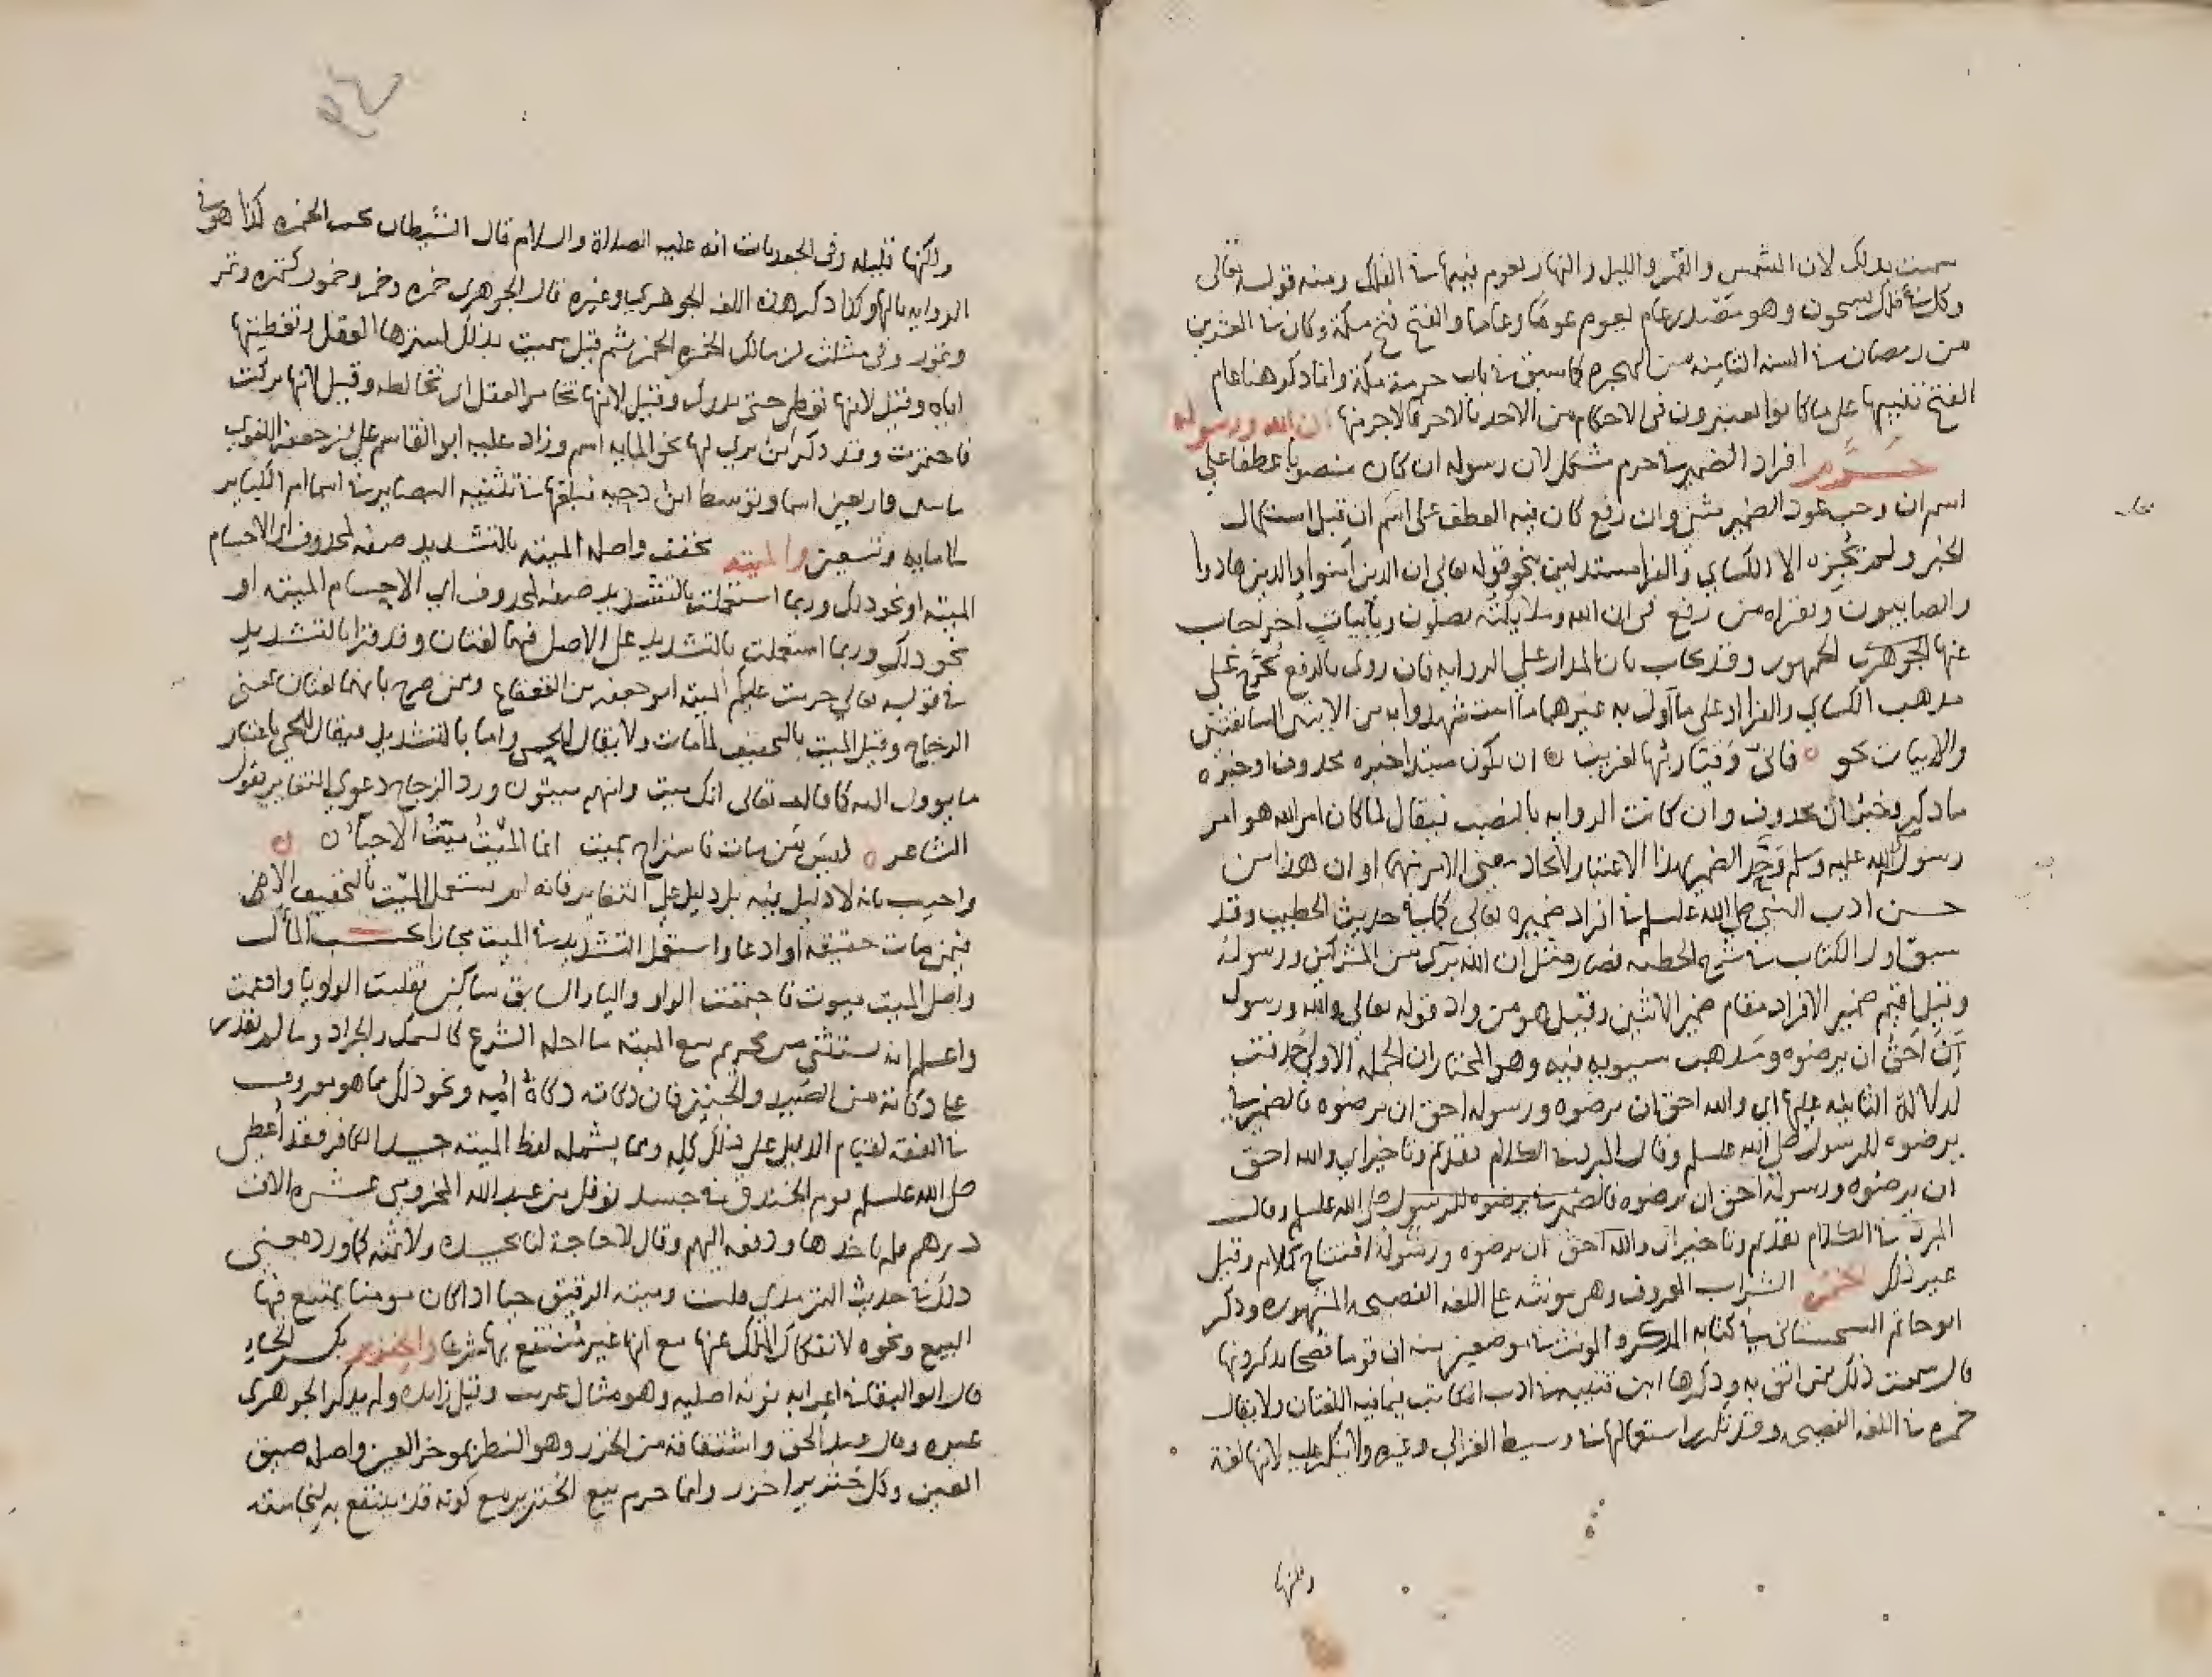 سميت بذلك لان الشمس والقمر والليل والنهار يعوم فيها في الفلك ومنه قوله تعالى
وكل في فلك يسبحون وهو مصدر عام يعوم عوما وعاما والفتح فتح مكة وكان في العشرين
من رمضان في السنة الثامنة من الهجرة كما سبق في باب حرمة مكة وانما ذكر هنا عام
الفتح تنبيها على ما كانوا يعتبرون في الاحكام من الاخذ بالاخر فالاخر منها ان الله ورسوله
حرم افراد الضمير في حرم مشكل لان رسوله ان كان منصوبا عطفا على
اسم ان وجب عود الضمير مثنى وان رفع كان فيه العطف على اسم ان قبل استكمال
الخبر ولم يجزه الا الكسائي والفرا مستدلين بنحو قوله تعالى ان الذين آمنوا والذين هادوا
والصابيون وبقراه من رفع في ان الله وملايكته يصلون وبابيات اخر اجاب
عنها الجوهرى الجمهور وقد يجاب بان المدار على الروايه فان روى بالرفع يخرج على
مذهب الكسائي والفرا وعلى ما آول به غيرهما ما استشهدوا به من الايتين السابقتين
والابيات نحو فاني وقيار بها لغريب ان يكون مبتدا خبره محذوف او خبره
ما ذكر وخبر ان محذوف وان كانت الروايه بالنصب فيقال لما كان امر الله هو امر
رسول الله عليه وسلم وحد الضمير بهذا الاعتبار لاتحاد معنى الامر منهما او ان هذا من
حسن ادب النبي صلى الله عليه وسلم في افراد ضميره تعالى كما في حديث الخطيب وقد
سبق اول الكتاب في شرح الخطبه فصار مثل ان الله برى من المشركين ورسوله
وقيل اقيم ضمير الافراد مقام ضمير الاثنين وقيل هو من واد قوله تعالى والله ورسوله
آن احق ان يرضوه ومذهب سيبويه فيه وهو المختار ان الجملة الاولى حذفت
لدلالة الثانيه عليها اي والله احق ان يرضوه ورسوله احق ان يرضوه فالضمير في
يرضوه للرسول صلى الله عليه وسلم وقال المبرد في الكلام تقديم وتاخير اي والله احق
ان يرضوه ورسوله احق ان يرضوه فالضمير في يرضوه للرسول صلى الله عليه وسلم وقال
المبرد في الكلام تقديم وتاخير اي والله احق ان يرضوه ورسوله افتتاح كلام وقيل
غير ذلك الخمر الشراب المعروف وهى مونثه على اللغه الفصيحه المشهوره وذكر
ابو حاتم السجستاني في كتابه المذكر والمونث في موضعين منه ان قوما فصحا يذكرونها
قال سمعت ذلك ممن اثق به وذكرها ابن قتيبه في ادب الكاتب فيما فيه اللغتان ولا يقال
خمره في اللغه الفصيحه وقد تكرر استعمالها في وسيط الغزالي وغيره ولا ينكر عليه لانها لغة
ولكنها
ولكنها قليله وفى الجعديات انه عليه الصلاة والسلام قال الشيطان يحب الخمره كذا هو في
الروايه بالها وكذا ذكر هذه اللغه الجوهري وغيره قال الجوهرى خمره وخمر وخمور كتمره وتمر
وتمور وفى مثلث ابن مالك الخمره الخمر ثم قيل سميت بذلك لسترها العقل وتغطيتها
اياه وقيل لانها تغطى حتى تدرك وقيل لانها تخامر العقل اى تخالطه وقيل لانها تركت
فاختمرت وقد ذكر ابن بري لها نحو المايه اسم وزاد عليه ابو القاسم علي بن جعفر اللغوي
فاربعين اسما وتوسط ابن دحيه فبلغها في تنبيه البصاير في اسما ام الكباير
مايه وتسعين والميته مخفف واصله الميته بالتشديد صفه لمحذوف اى الاجسام
الميته او نحو ذلك وربما استعملت بالتشديد صفه لمحذوف اي الاجسام الميته او
نحو ذلك وربما استعملت بالتشديد على الاصل فهما لغتان وقد قرا بالتشديد
في قوله تعالى حرمت عليكم الميته ابو جعفر بن القعقاع وممن صرح بانهما لغتان بمعنى
الزجاج وقيل الميت بالتخفيف لما مات ولا يقال للحي واما بالتشديد فيقال للحي باعتبار
ما يوول اليه كما قال تعالى انك ميت وانهم ميتون ورد الزجاج دعوى التغاير بقول
الشاعر ليس من مات فاستراح بميت انما الميت ميت الاحياء
واجيب بانه لا دليل فيه بل دليل على التغاير فانه لم يستعمل الميت بالتخفيف الا فى
فيمن مات حقيقه او ادعا واستعمل التشديد في الميت مجازا بحسب المآل
واصل الميت ميوت فاجتمعت الواو واليا والسابق ساكن فقلبت الواو يا وادغمت
واعلم انه يستثنى من تحريم بيع الميته ما احله الشرع كالسمك والجراد وما لم نقدر
على ذكاته من الصيد والجنين فان ذكاته ذكاة امه ونحو ذلك مما هو معروف
في الفقه لقيام الدليل على ذلك كله ومما يشمله لفظ الميته جسد الكافر فقد أعطى
صلى الله عليه وسلم يوم الخندق في جسد نوفل بن عبد الله المخزومى عشره الاف
درهم فلم ياخذها ودفعه اليهم وقال لا حاجة لنا بجسده ولا ثمنه كما ورد معنى
ذلك في حديث الترمذي قلت وميته الرقيق حيا اذا كان مومنا يمتنع فيها
البيع ونحوه لانفكاك الملك عنها مع انها غير منتفع بها شرعا والخنزير بكسر الخاء
قال ابو البقا في اعرابه نونه اصليه وهو مثال غربيب وقيل زايده ولم يذكر الجوهرى
غيره وقال عبد الحق واشتقاقه من الخزر وهو النظر بموخر العين واصله ضيق
العين وكل خنزير اخزر وانما حرم بيع الخنزير مع كونه قد ينتفع به لنجاسته